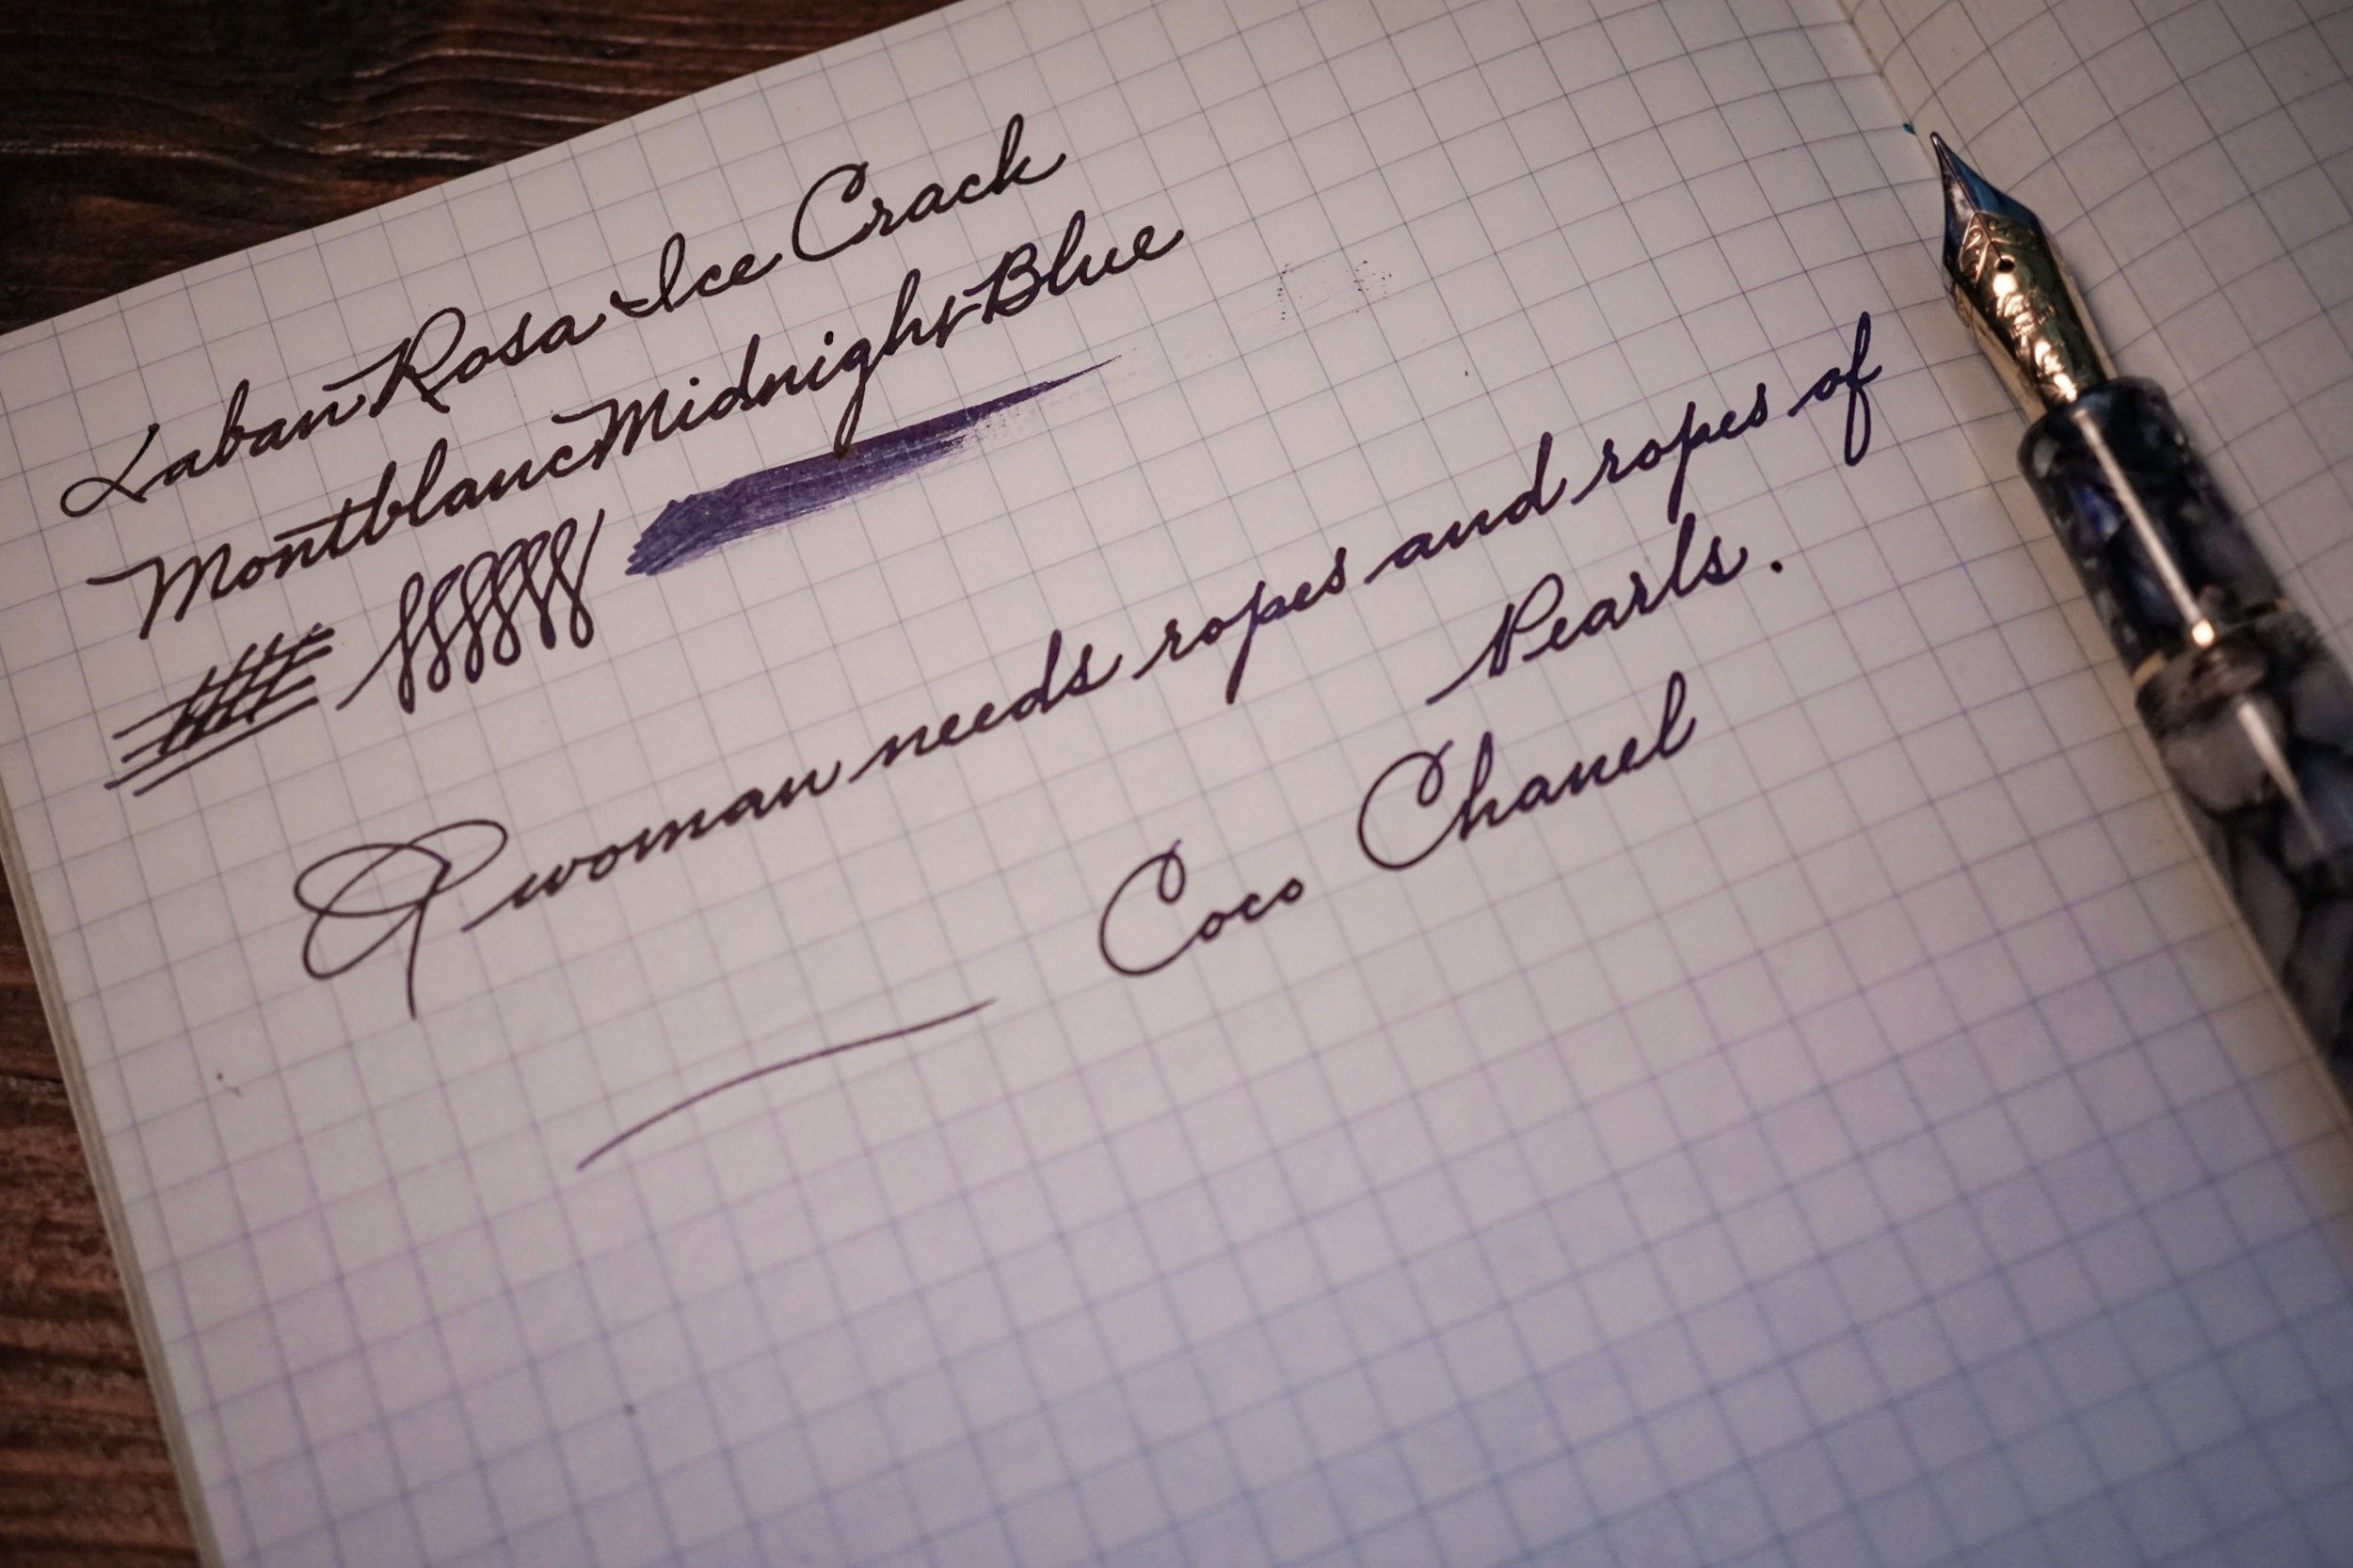 Laban Rosa Ice Crack
Montblanc Midnight Blue
A woman needs ropes and ropes of
Pearls.
Coco Chanel